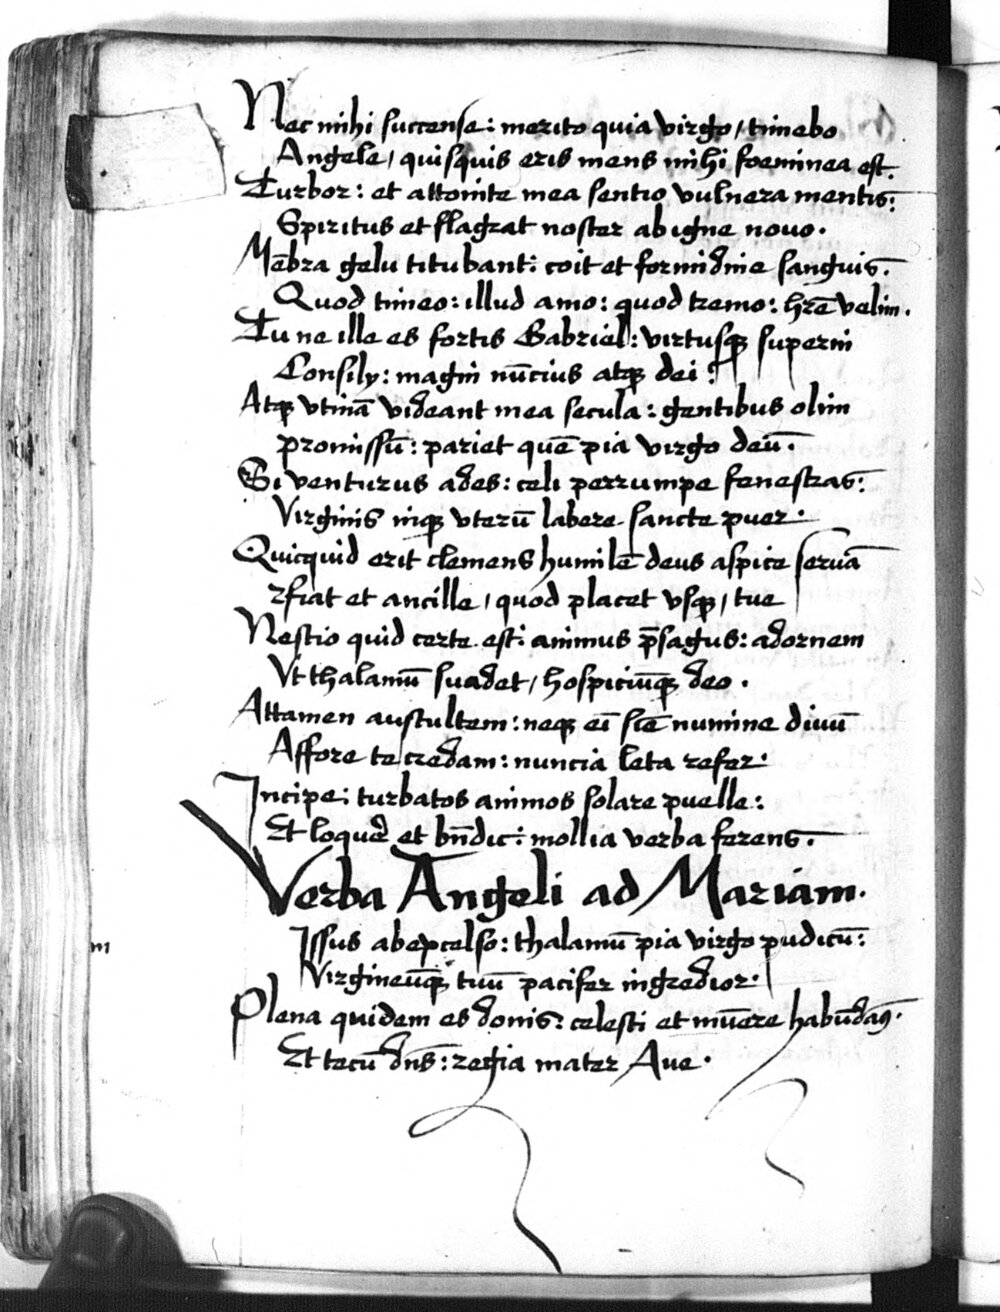 Nec mihi succense: merito quia virgo / timebo
Angele / quisquis eris mens mihi foeminea est.
Turbor: et attonite mea sentio vulnera mentis:
Spiritus et flagrat noster ab igne novo.
Mēbra gelu titubant: coit et formidine sanguis.
Quod timeo: illud amo: quod tremo: hr̄e velim.
Tu ne ille es fortis Gabriel: virtusqꝫ superni
Consily: magni nūcius atqꝫ dei?
Atqꝫ vtinā videant mea secula: gentibus olim
promissū: pariet quē pia virgo deū.
Si venturus ades: celi perrumpe fenestras:
Virginis inqꝫ vterū labere sancte puer.
Quicquid erit clemens humilē deus aspice servā
fiat et ancille / quod placet vsqꝫ / tue
Nescio quid certe est: animus p̄sagus: adornem
Vt thalamū suadet / hospiciūqꝫ deo.
Attamen auscultem: neqꝫ eī sīe numine divū
Affore te credam: nuncia leta refer.
Incipe: turbatos animos solare puelle:
Et loquere et bn̄dic: mollia verba ferens.
Verba Angeli ad Mariam.
Issus ab excelso: thalamū pia virgo pudicū:
Virgineūqꝫ tuū pacifer ingredior.
Plena quidem es donis: celesti et mūere habūdās.
Et tecū dn̄s: regia mater Ave.
m